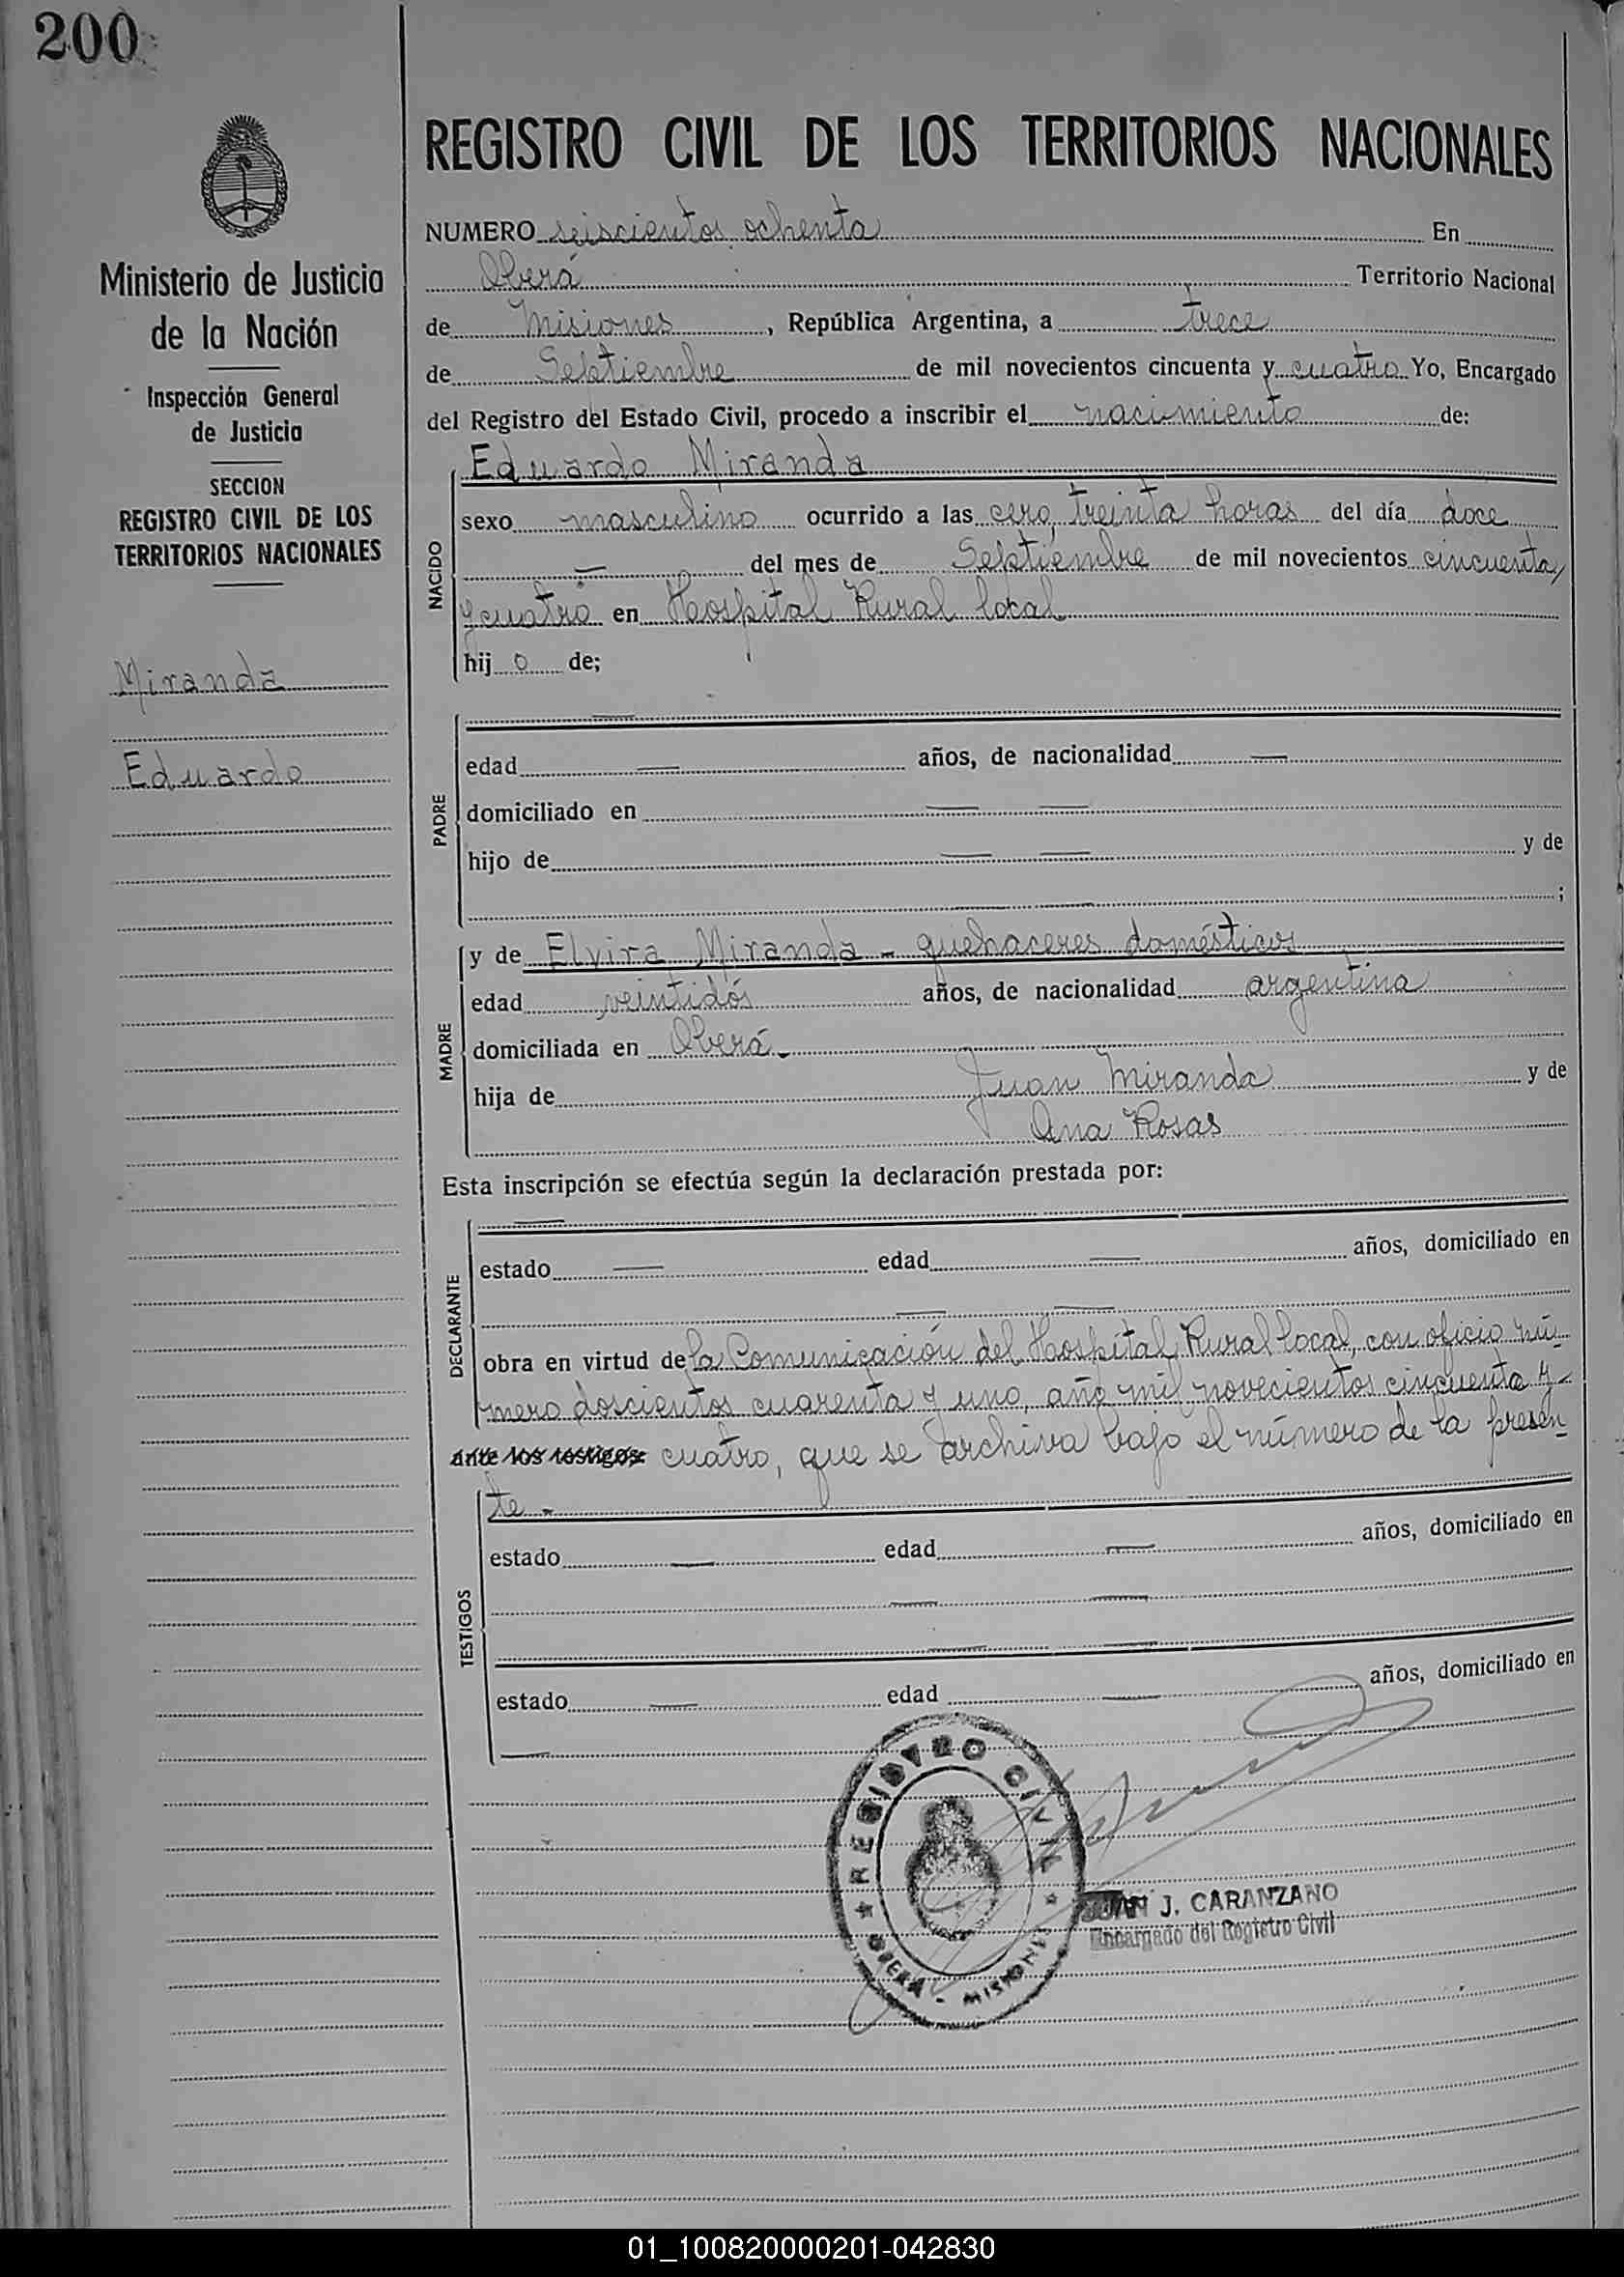 200
REGISTRO CIVIL DE LOS TERRITORIOS NACIONALES
Ministerio de Justicia
de la Nación
Inspección General
de Justicia
SECCION
REGISTRO CIVIL DE LOS
TERRITORIOS NACIONALES
Miranda
Eduardo
NUMERO seiscientos ochenta En
Oberá Territorio Nacional
de Misiones, República Argentina, a trece
de Septiembre de mil novecientos cincuenta y cuatro Yo, Encargado
del Registro del Estado Civil, procedo a inscribir el nacimiento de:
NACIDO
Eduardo Miranda
sexo masculino ocurrido a las cero, treinta horas del día doce
— del mes de Septiembre de mil novecientos cincuenta
y cuatro en Hospital Rural local
hij o de;
PADRE
—
edad — años, de nacionalidad —
domiciliado en — —
hijo de — — y de
— — ;
MADRE
y de Elvira Miranda - quehaceres domésticos
edad veintidós años, de nacionalidad argentina
domiciliada en Oberá -
hija de Juan Miranda y de
Ana Rosas
Esta inscripción se efectúa según la declaración prestada por:
DECLARANTE
—
estado — edad — años, domiciliado en
— —
obra en virtud de la Comunicación del Hospital Rural local, con oficio nú-
mero doscientos cuarenta y uno, año mil novecientos cincuenta y -
ante los testigos: cuatro, que se archiva bajo el número de la presen
te -
TESTIGOS
estado — edad — años, domiciliado en
— —
— —
estado — edad — años, domiciliado en
—
REGISTRO CIVIL
OBERÁ - MISIONES
JUAN J. CARANZANO
Encargado del Registro Civil
01_100820000201-042830